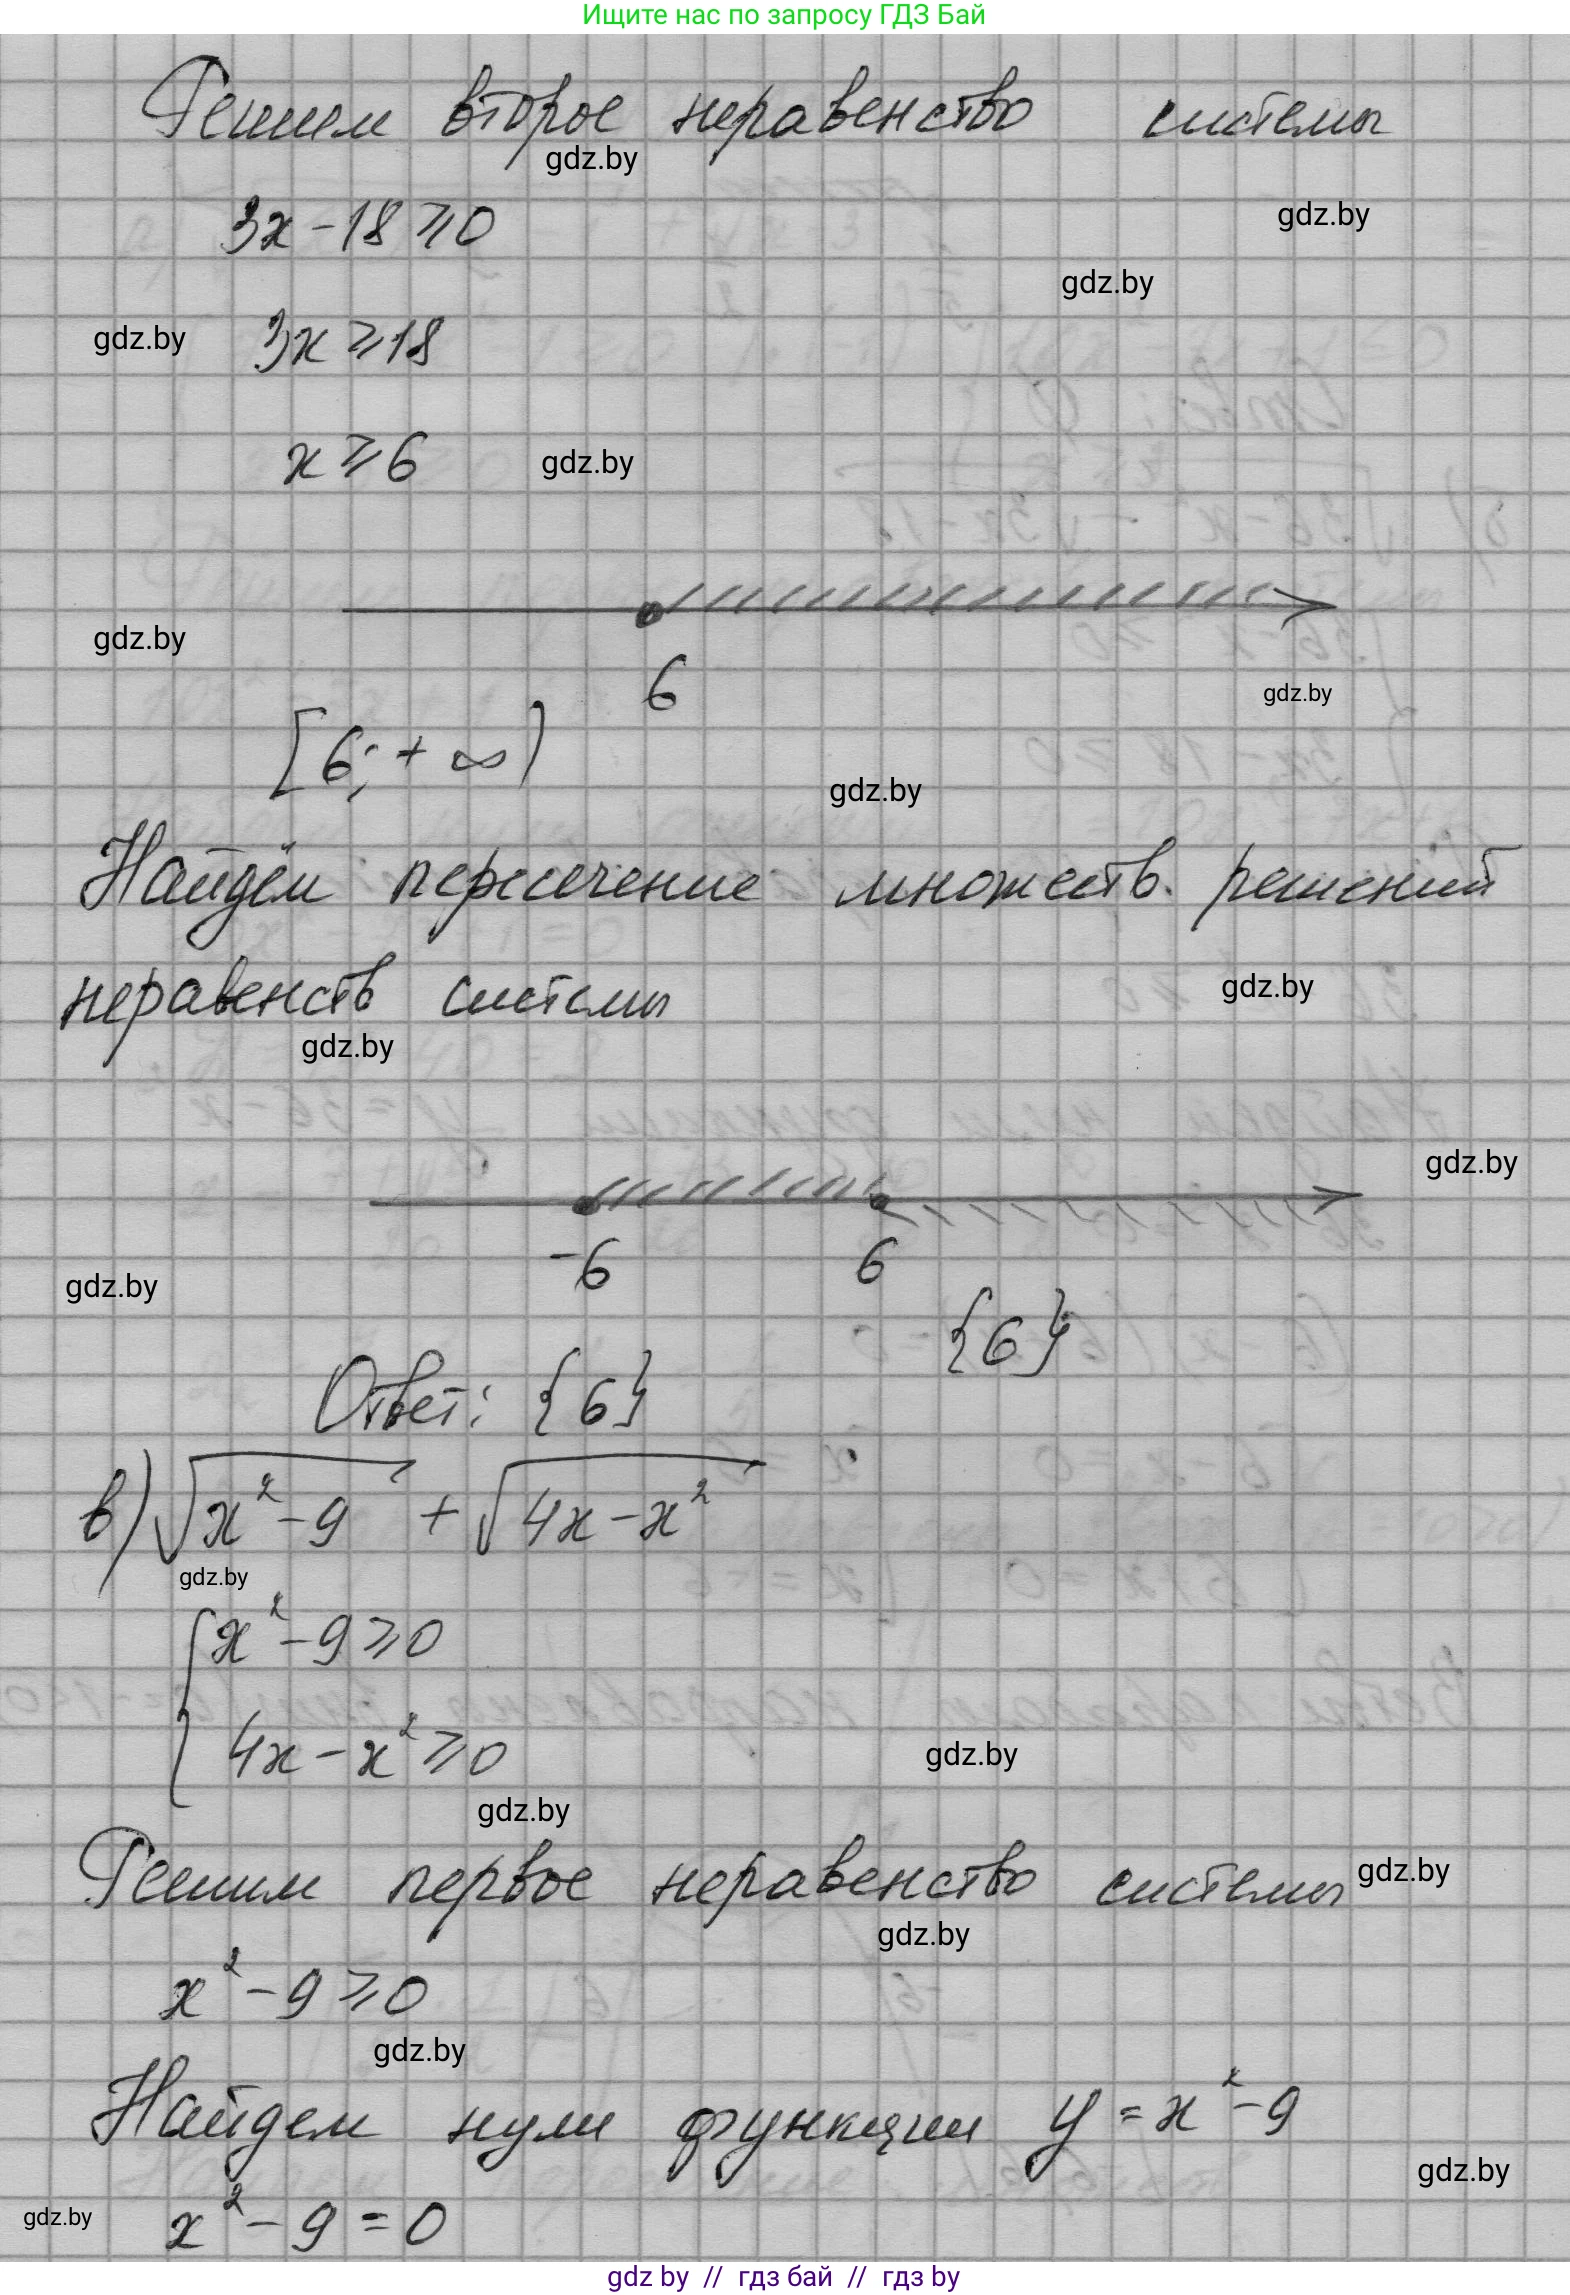 Ищите нас по запросу ГДЗ Бай
Решим второе неравенство системы
gdz.by
3x - 18 ⩾ 0
gdz.by
gdz.by
gdz.by
3x ⩾ 18
x ⩾ 6
gdz.by
gdz.by
6
gdz.by
[6; + ∞)
gdz.by
Найдём пересечение множеств решений
неравенств системы
gdz.by
gdz.by
gdz.by
-6 6
gdz.by
{6}
Ответ: {6}
в) √(x² - 9) + √(4x - x²)
gdz.by
{ x² - 9 ⩾ 0
4x - x² ⩾ 0
gdz.by
gdz.by
Решим первое неравенство системы
gdz.by
gdz.by
x² - 9 ⩾ 0
gdz.by
Найдем нули функции y = x² - 9
gdz.by
gdz.by
x² - 9 = 0
gdz by // гдз бай // гдз by